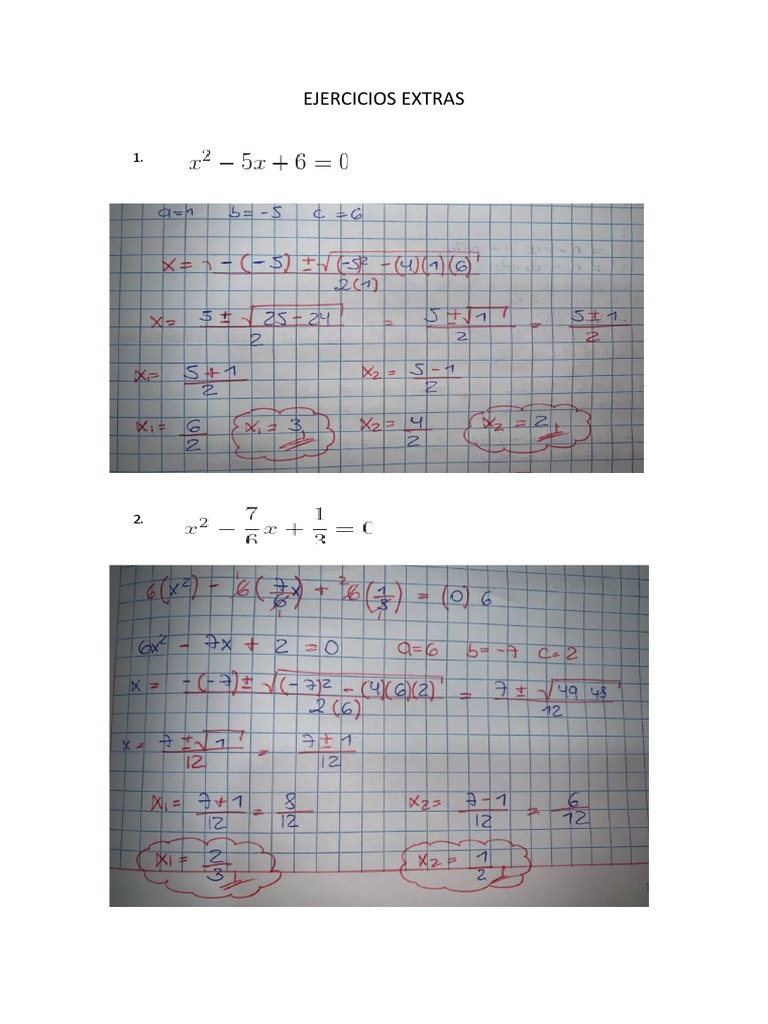 EJERCICIOS EXTRAS
1. x² − 5x + 6 = 0
a=1 b=-5 c=6
x= -(-5) ± √(-5² -(4)(1)(6) / 2(1)
x= 5 ± √25-24 / 2 = 5 ± √1 / 2 = 5 ± 1 / 2
x₁= 5+1 / 2 x₂= 5-1 / 2
x₁= 6/2 x₁= 3 x₂= 4/2 x₂ = 2
2. x² − 7/6 x + 1/3 = 0
6(x²) - 6(7/6 x) + 6(1/3) = (0) 6
6x² - 7x + 2 = 0 a=6 b=-7 c=2
x = -(-7) ± √(-7)² -(4)(6)(2) / 2(6) = 7 ± √49 48 / 12
x= 7 ± √1 / 12 = 7 ± 1 / 12
x₁= 7+1 / 12 = 8/12 x₂= 7-1 / 12 = 6/12
x₁= 2/3 x₂= 1/2